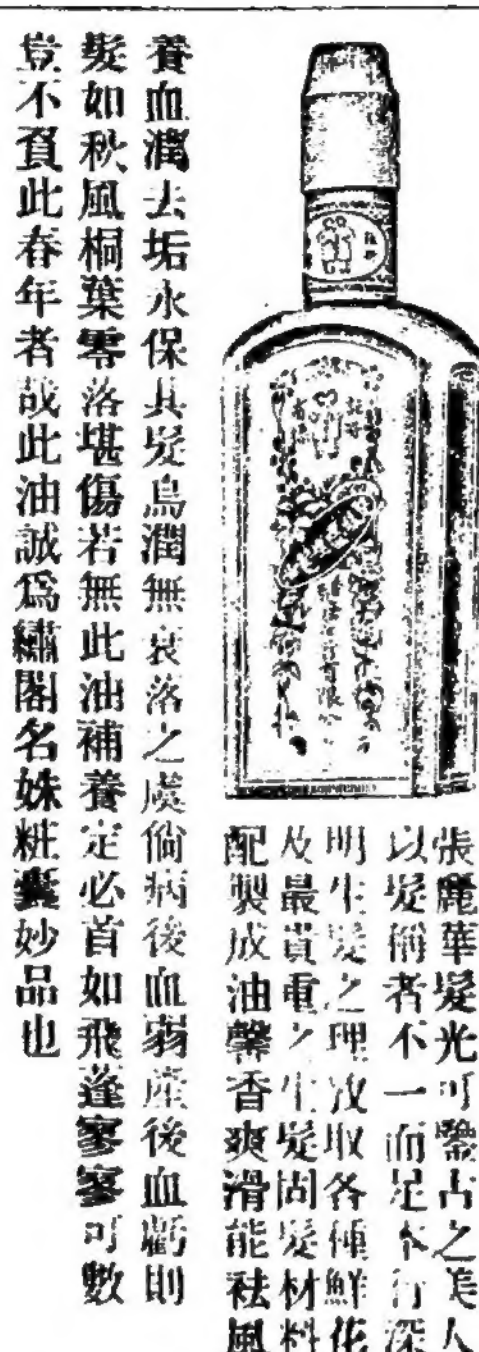 張麗華髮光可鑒古之美人
以髮稱者不一而足本行深
明生髮之理故取各種鮮花
及最貴重之生髮固髮材料
配製成油馨香爽滑能袪風
養血潤去垢永保其髮烏潤無衰落之虞倘病後血弱產後血虧則
髮如秋風桐葉零落堪傷若無此油補養定必首如飛蓬寥寥可數
豈不負此春年者哉此油誠爲繡閣名姝粧囊妙品也